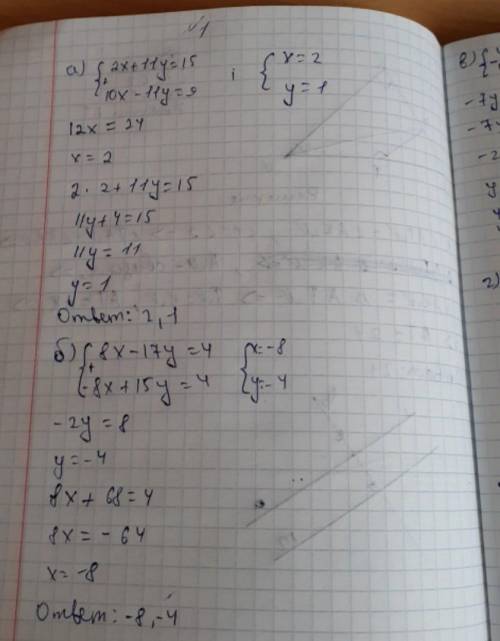 √1
а) { 2x+11y=15 ; { x=2
+ 10x-11y=9 y=1
12x=24
x=2
2·2+11y=15
11y+4=15
11y=11
y=1
Ответ: 2, 1
б) { 8x-17y=4 { x=-8
+ -8x+15y=4 y=-4
-2y=8
y=-4
8x+68=4
8x=-64
x=-8
Ответ: -8, -4
в) {
-7y
-7·
-2
y
г)